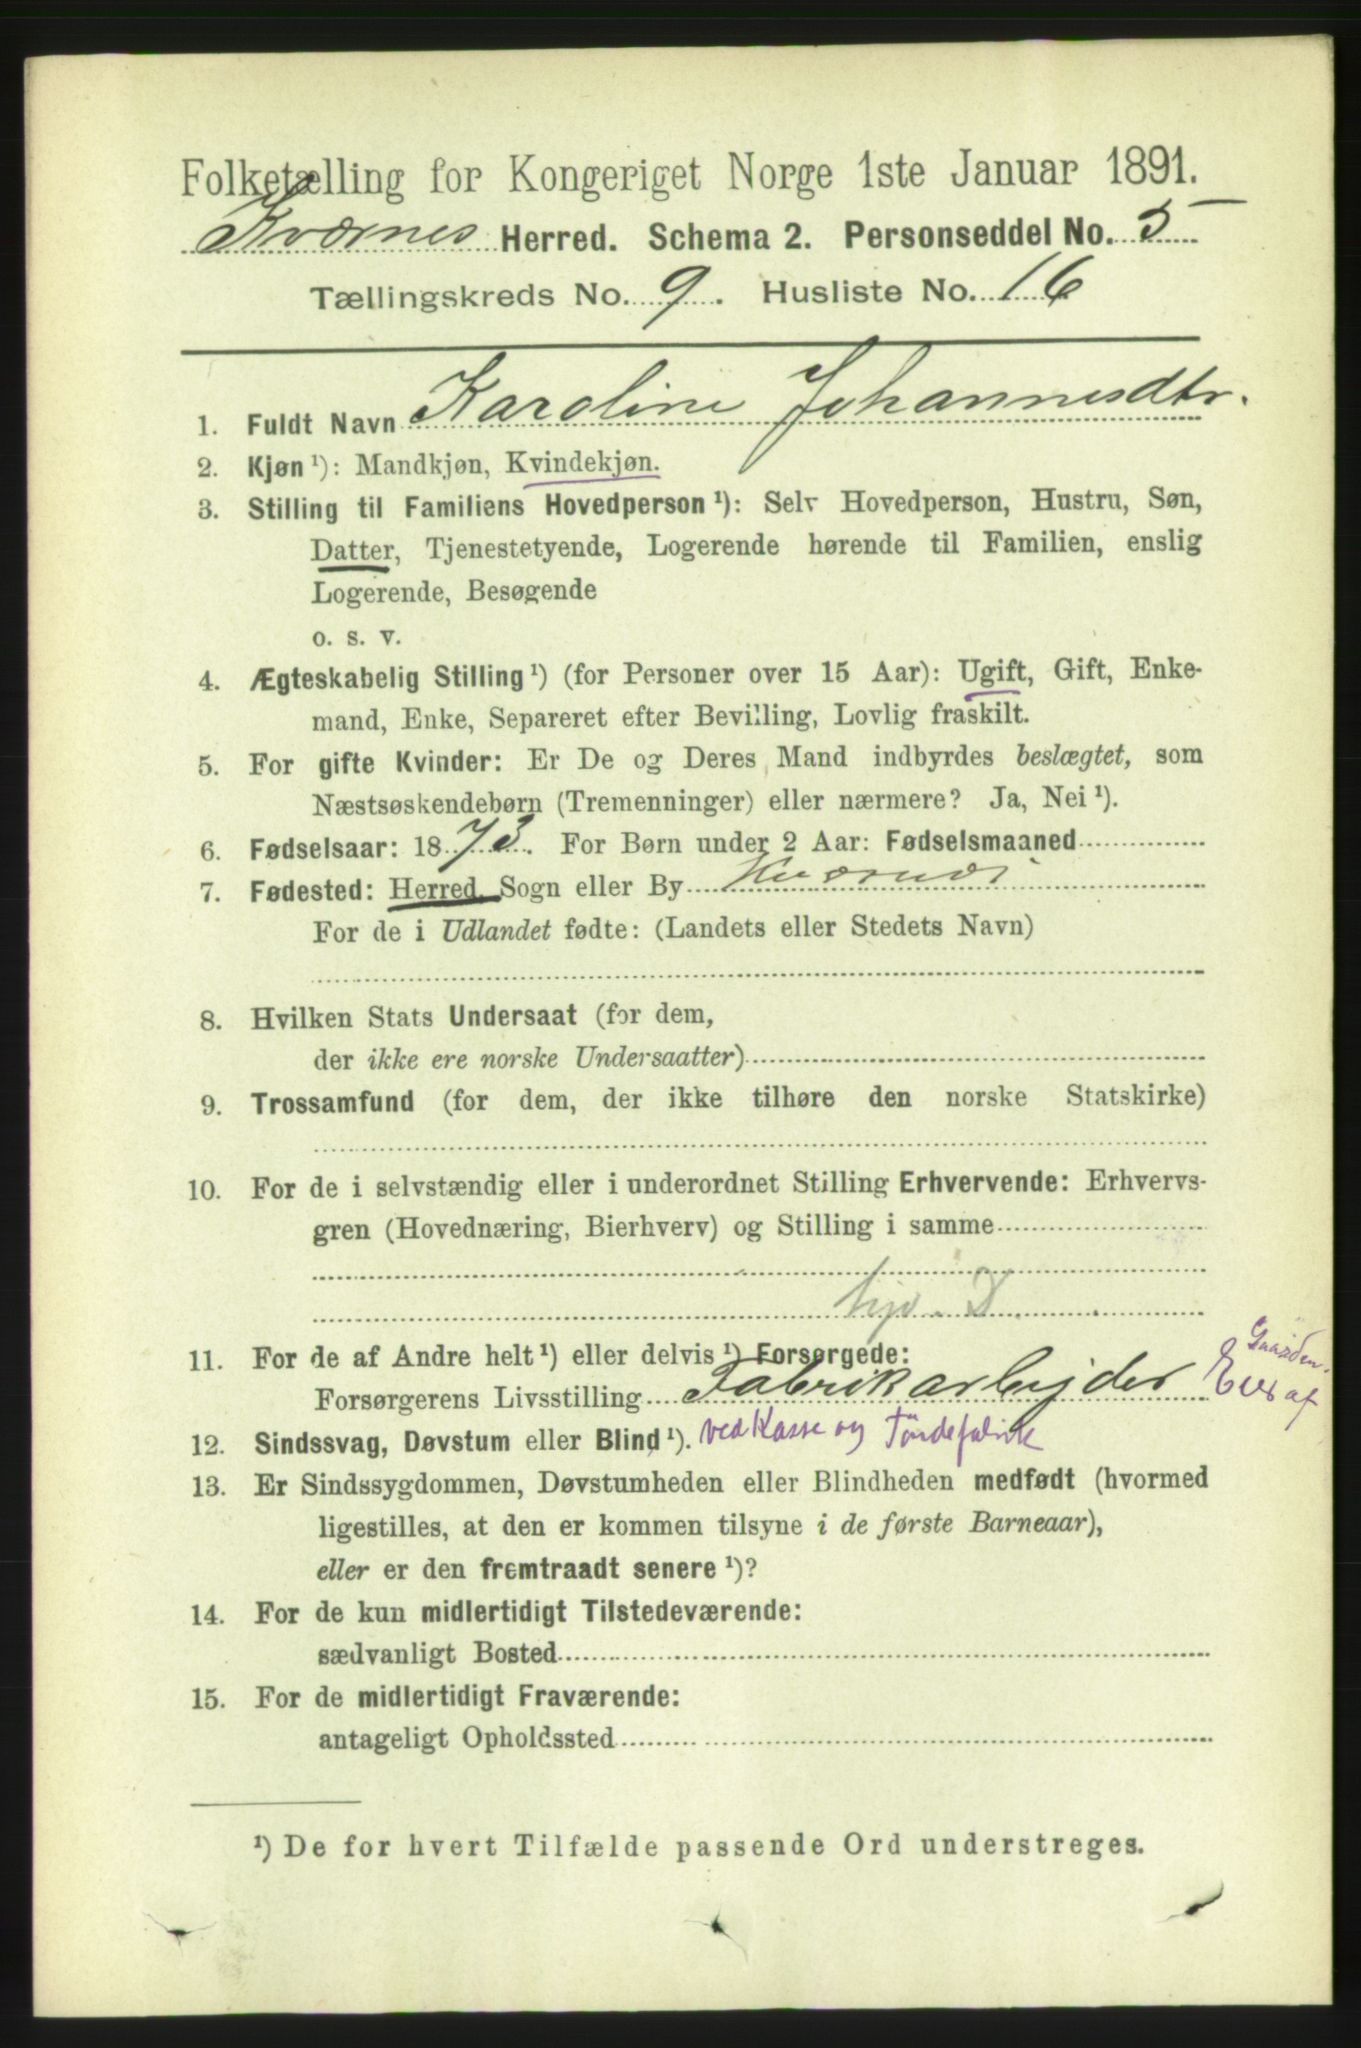 Folketælling for Kongeriget Norge 1ste Januar 1891.
Kværnes Herred. Schema 2. Personseddel No. 5
Tællingskreds No. 9. Husliste No. 16
1. Fuldt Navn Karoline Johannesdtr.
2. Kjøn ¹): Mandkjøn, Kvindekjøn.
3. Stilling til Familiens Hovedperson ¹): Selv Hovedperson, Hustru, Søn,
Datter, Tjenestetyende, Logerende hørende til Familien, enslig
Logerende, Besøgende
o. s. v.
4. Ægteskabelig Stilling ¹) (for Personer over 15 Aar): Ugift, Gift, Enke-
mand, Enke, Separeret efter Bevilling, Lovlig fraskilt.
5. For gifte Kvinder: Er De og Deres Mand indbyrdes beslægtet, som
Næstsøskendebørn (Tremenninger) eller nærmere? Ja, Nei ¹).
6. Fødselsaar: 1873. For Børn under 2 Aar: Fødselsmaaned
7. Fødested: Herred, Sogn eller By Kværnes
For de i Udlandet fødte: (Landets eller Stedets Navn)
8. Hvilken Stats Undersaat (for dem,
der ikke ere norske Undersaatter)
9. Trossamfund (for dem, der ikke tilhøre den norske Statskirke)
10. For de i selvstændig eller i underordnet Stilling Erhvervende: Erhvervs-
gren (Hovednæring, Bierhverv) og Stilling i samme
hjv. D
11. For de af Andre helt ¹) eller delvis ¹) Forsørgede:
Forsørgerens Livsstilling Fabrikarbejder Eier af Gaarden.
12. Sindssvag, Døvstum eller Blind ¹). ved Kasse og Töndefabrik
13. Er Sindssygdommen, Døvstumheden eller Blindheden medfødt (hvormed
ligestilles, at den er kommen tilsyne i de første Barneaar),
eller er den fremtraadt senere ¹)?
14. For de kun midlertidigt Tilstedeværende:
sædvanligt Bosted
15. For de midlertidigt Fraværende:
antageligt Opholdssted
¹) De for hvert Tilfælde passende Ord understreges.